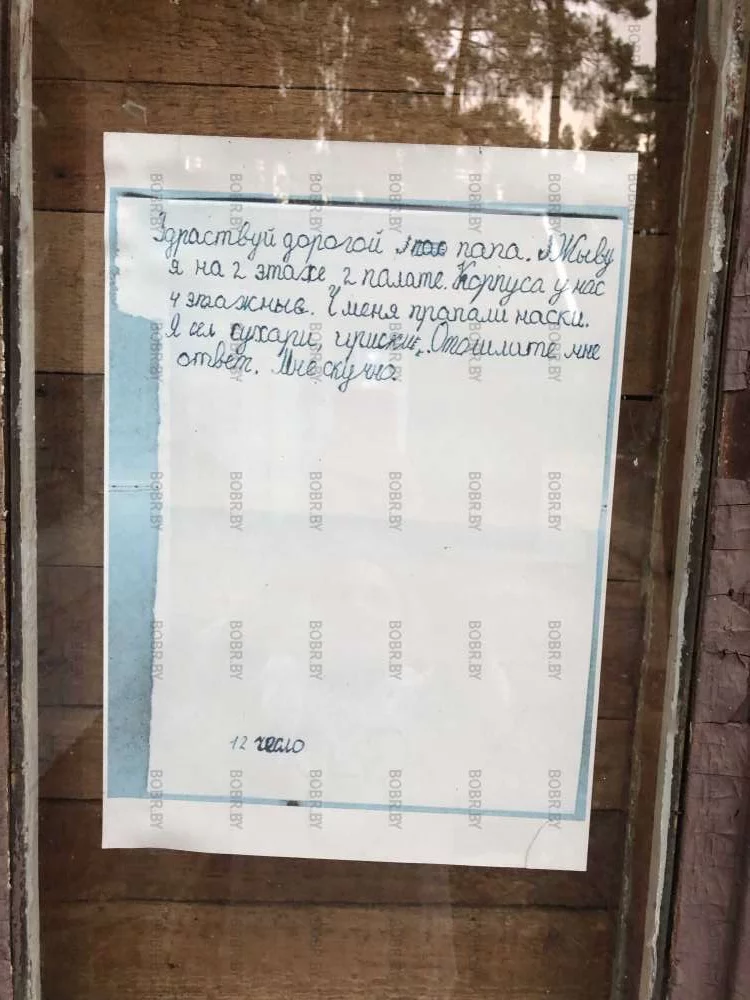 Здраствуй дорогой папа. Жыву
я на 2 этаже, 2 палате. Корпуса у нас
4 этажные. У меня прапали наски.
Я ел сухари, ириски. Отошлите мне
ответ. Мне скучно.
12 число
BOBR.BY